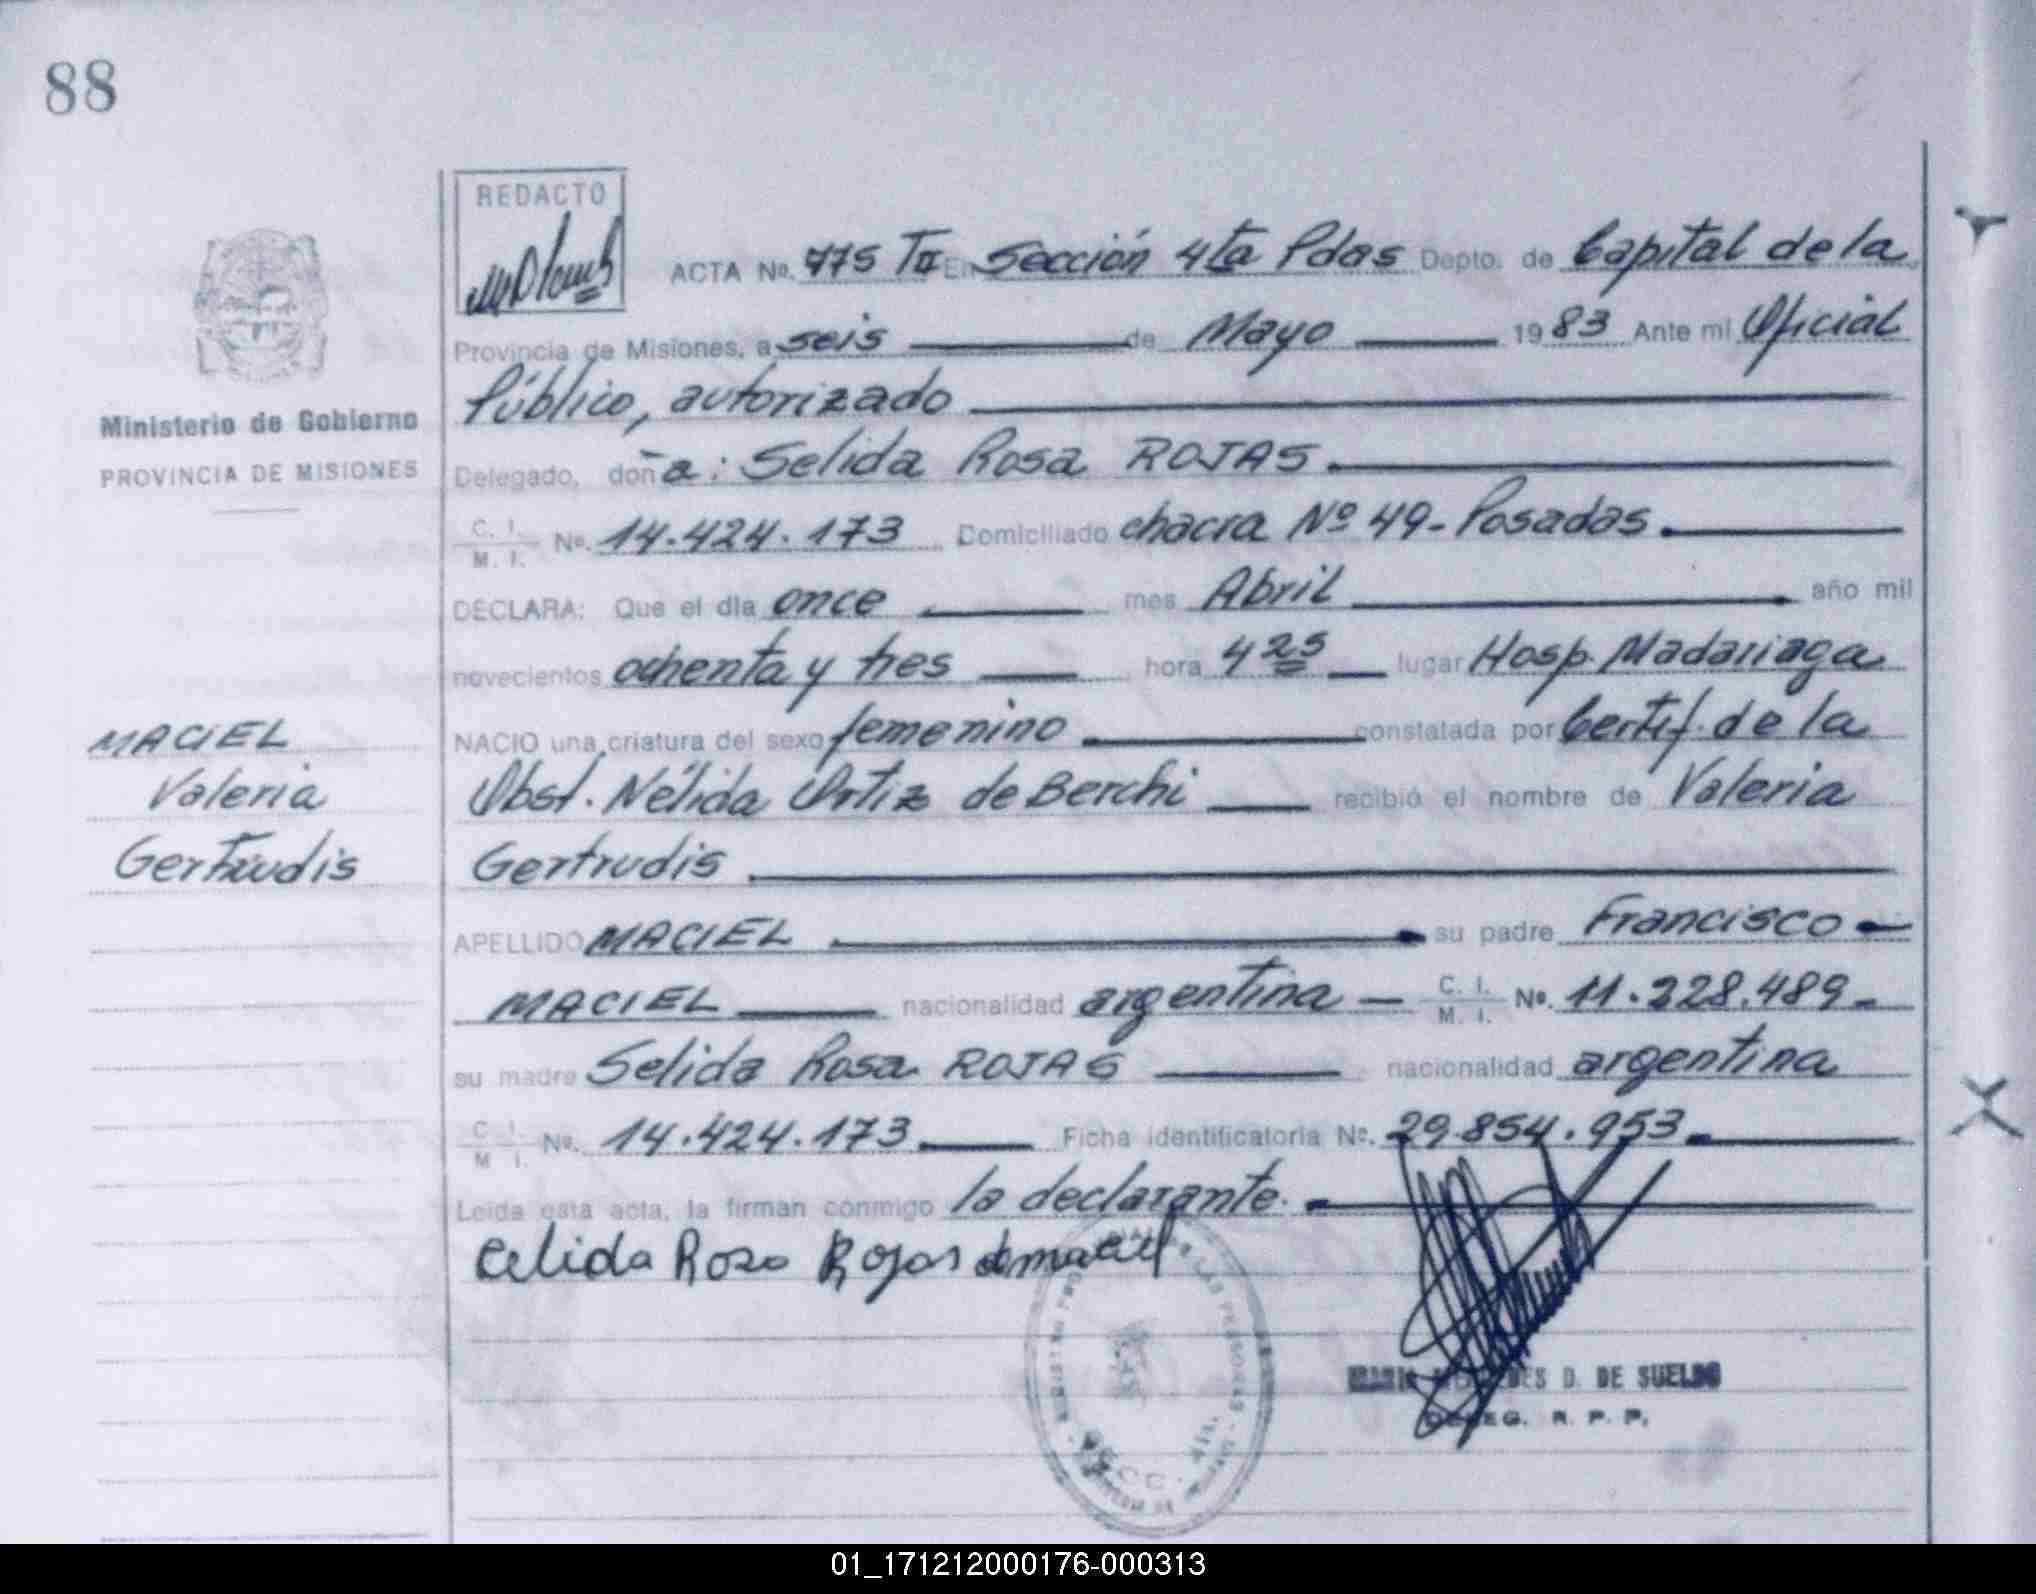 88
REDACTO
ACTA No. 775 TII En Sección 4ta Pdas Depto. de Capital de la
Provincia de Misiones, a seis de Mayo 1983 Ante mi Oficial
Público, autorizado
Ministerio de Gobierno
PROVINCIA DE MISIONES
Delegado, doña: Selida Rosa ROJAS.
C. I.
M. I. No. 14.424.173 Domiciliado chacra Nº 49 - Posadas.
DECLARA: Que el día once mes Abril año mil
novecientos ochenta y tres hora 4 25 lugar Hosp. Madariaga
NACIO una criatura del sexo femenino constatada por Certif. de la
Obst. Nélida Ortiz de Berchi recibió el nombre de Valeria
Gertrudis
MACIEL
Valeria
Gertrudis
APELLIDO MACIEL su padre Francisco
MACIEL nacionalidad argentina C. I. M. I. No. 11.228.489
su madre Selida Rosa ROJAS nacionalidad argentina
C. I. M. I. No. 14.424.173 Ficha identificatoria No. 29.854.953
Leida esta acta, la firman conmigo la declarante.
Celida Rosa Rojas de maciel
D. DE SUELDO
DELEG. R. P. P.
01_171212000176-000313